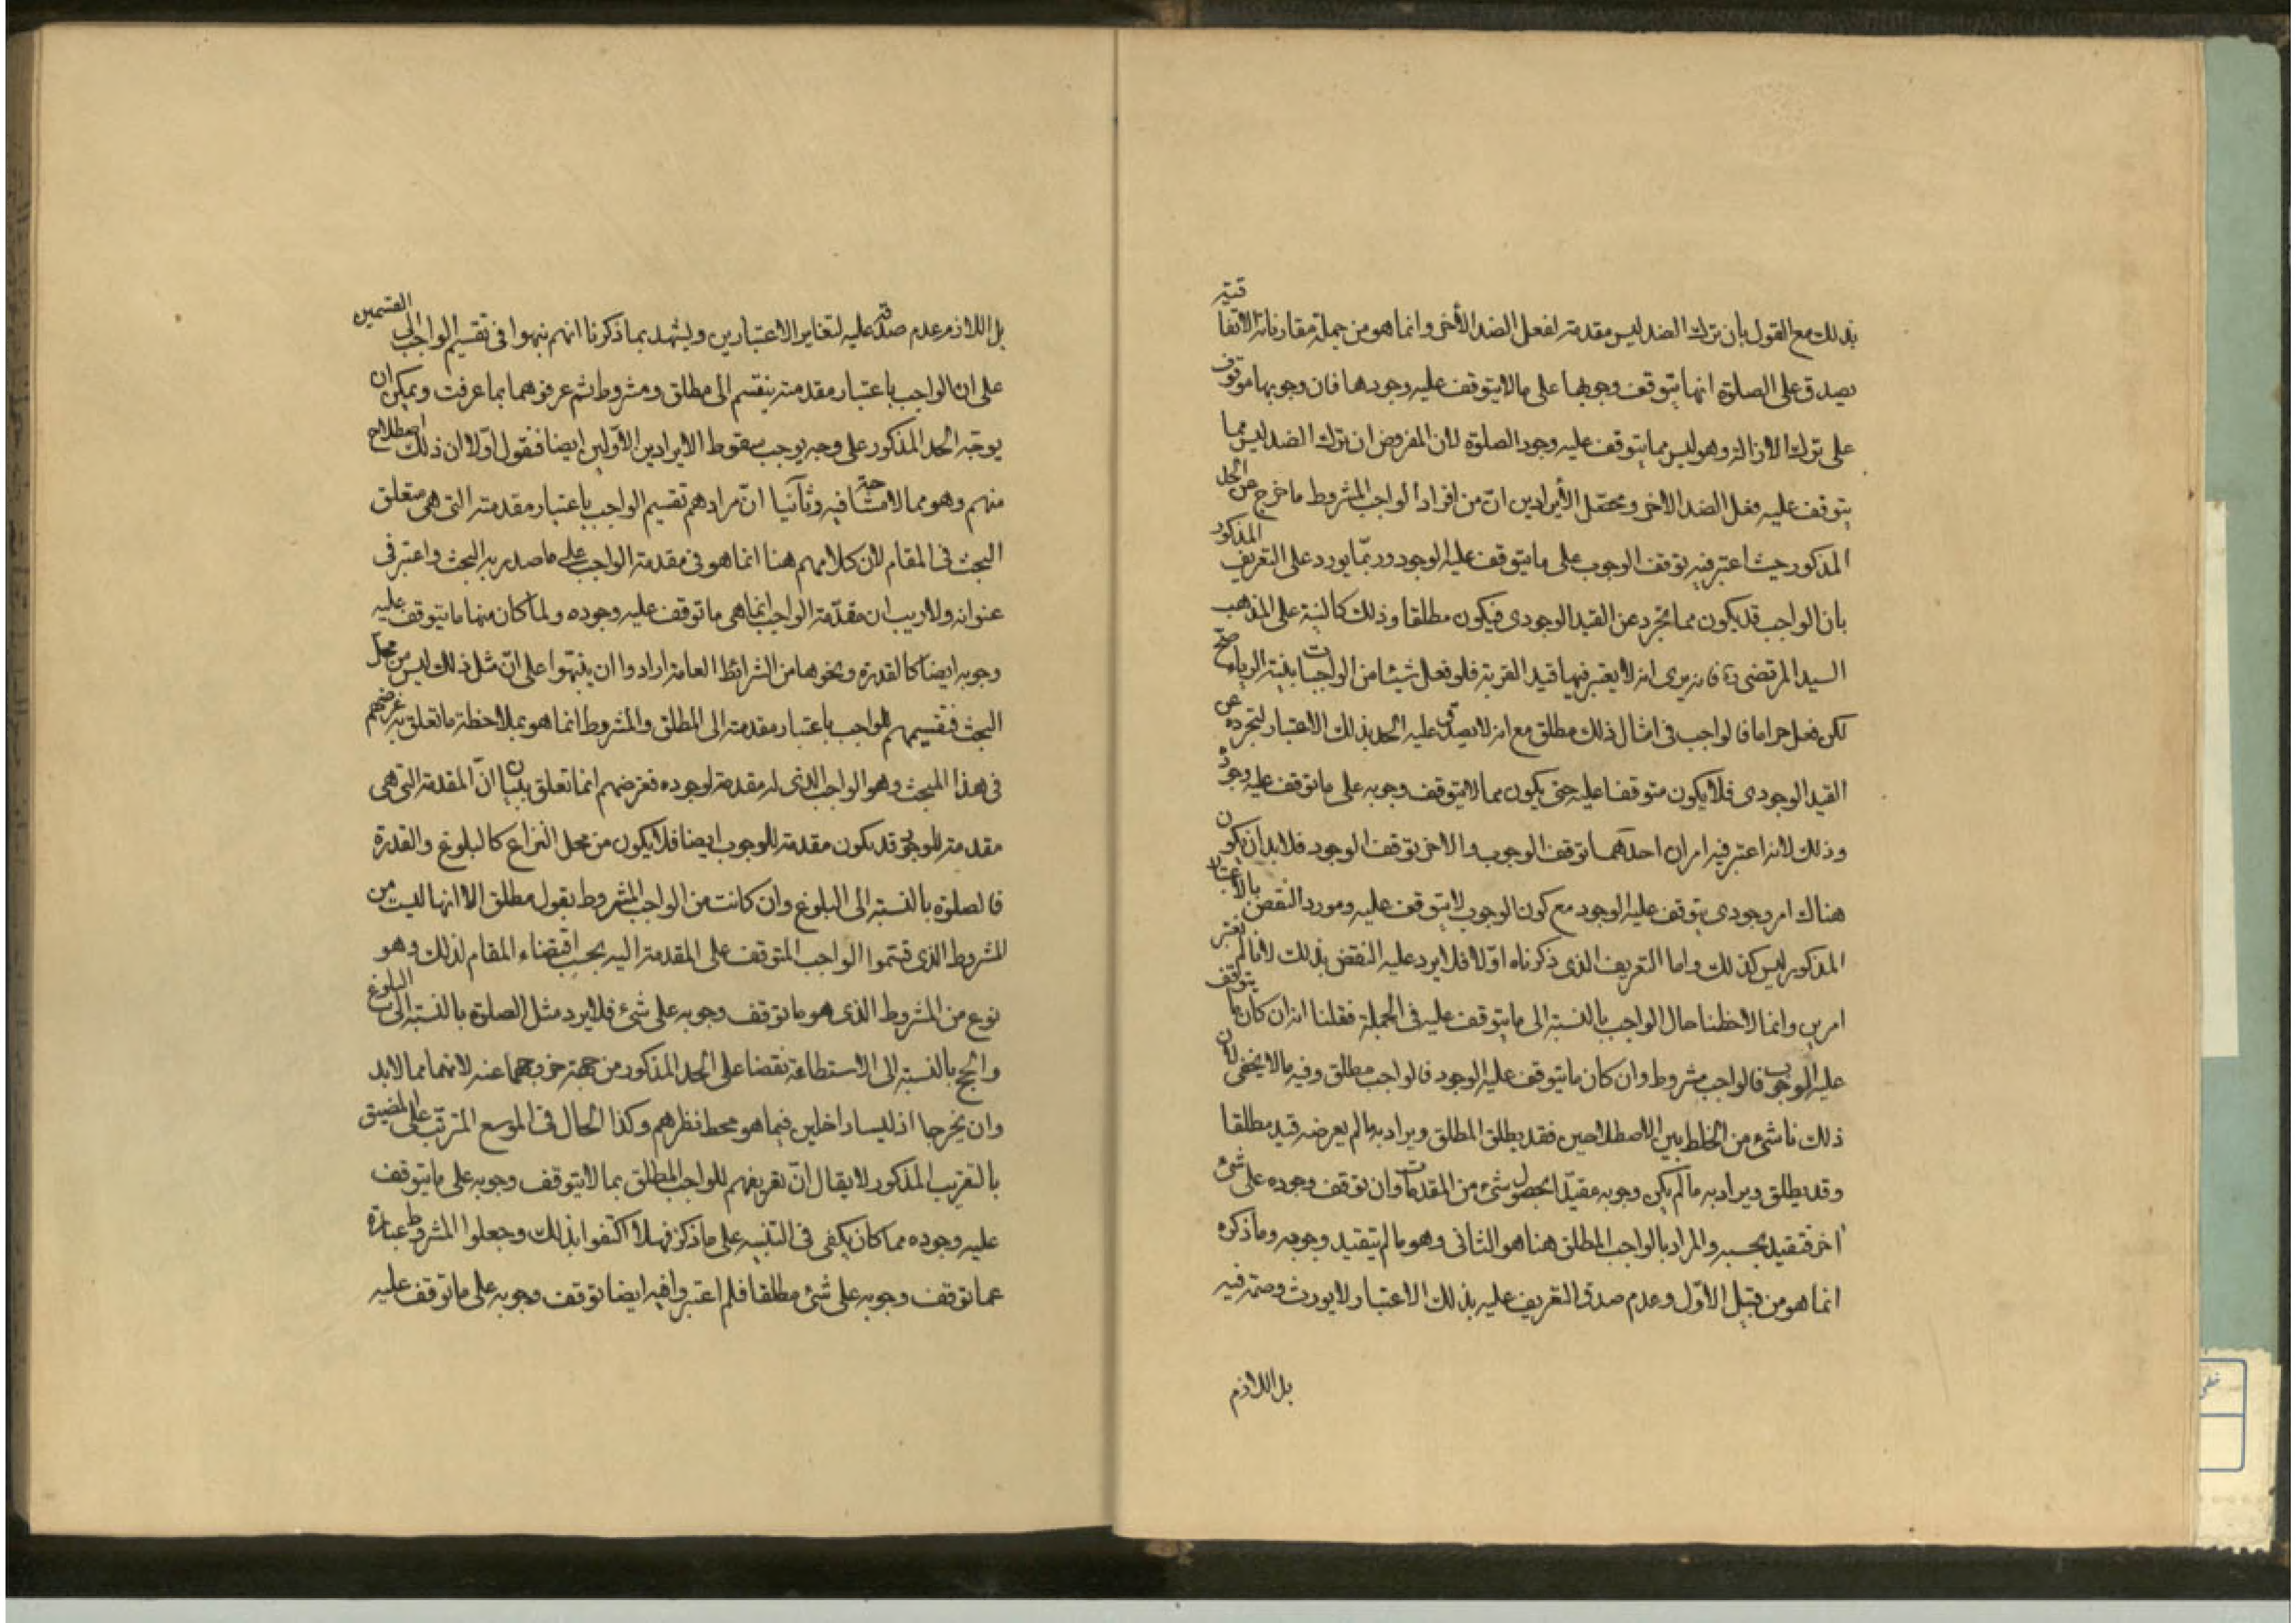 بذلك مع القول بان ترك الضد ليس مقدمة لفعل الضد الأخر وانما هو من جملة مقارناته الاتفاقية
يصدق على الصلوة انها يتوقف وجوبها على مالايتوقف عليه وجودها فان وجوبها موقوف
على ترك الازالة وهو ليس مما يتوقف عليه وجود الصلوة لان المفروض ان ترك الضد ليس مما
يتوقف عليه فعل الضد الاخر ومحصّل الأيرادين انّ من افراد الواجب المشروط ما خرج عن الحد
المذكور حيث اعتبر فيه توقف الوجوب على ما يتوقف عليه الوجود وربّما يورد على التعريف المذكور
بان الواجب قد يكون مما تجرد عن القيد الوجودى فيكون مطلقا وذلك كالنية على المذهب
السيد المرتضى ره فانه يرى انه لا يعتبر فيها قيد القربة فلو فعل شيئا من الواجبات بنية الرياء صحّ
لكن فعل حراما فالواجب فى امثال ذلك مطلق مع انه لا يصدق عليه الحد بذلك الاعتبار لتجرده عن
القيد الوجودى فلا يكون متوقفا عليه حتى يكون مما لايتوقف وجوبه على ما توقف عليه وجوده
وذلك لانه اعتبر فيه امران احدهما توقف الوجوب والاخر توقف الوجود فلابد ان يكون
هناك امر وجودى يتوقف عليه الوجود مع كون الوجوب لا يتوقف عليه ومورد النقض بالاعتبار
المذكور ليس كذلك واما التعريف الذى ذكرناه اوّلا فلا يرد عليه النقض بذلك لانا لم نعتبر
امرين وانما لاحظنا حال الواجب بالنسبة الى ما يتوقف عليه فى الجملة فقلنا انه ان كان ما يتوقف
عليه الوجوب فالواجب مشروط وان كان ما يتوقف عليه الوجود فالواجب مطلق وفيه مالايخفى لان
ذلك ناشئ من الخلط بين الاصطلاحين فقد يطلق المطلق ويراد به مالم يعرضه قيد مطلقا
وقد يطلق ويراد به مالم يكن وجوبه مقيّدا بحصول شئ من المقدمات وان توقف وجوده على شئ
اخر فتقيد بحسبه والمراد بالواجب المطلق هنا هو الثانى وهو مالم يتقيد وجوبه وما ذكره
انما هو من قبيل الأوّل وعدم صدق التعريف عليه بذلك الاعتبار لا يورث وصمة فيه
بل اللازم
بل اللازم عدم صدقه عليه لتغاير الاعتبارين ويشهد بما ذكرنا انهم نبهوا فى تقسيم الواجب الى القسمين
على ان الواجب باعتبار مقدمته ينقسم الى مطلق ومشروط ثم عرفوهما بما عرفت ويمكن ان
يوجّه الحد المذكور على وجه يوجب سقوط الايرادين الأوّلين ايضا فنقول اوّلا ان ذلك اصطلاح
منهم وهو مما لا مشاحة فيه وثانيا انّ مرادهم تقسيم الواجب باعتبار مقدمته التى هى متعلق
البحث فى المقام لان كلامهم هنا انما هو فى مقدمة الواجب على ما صدر به البحث واعتبر فى
عنوانه ولا ريب ان مقدّمة الواجب انما هى ما توقف عليه وجوده ولما كان منها ما يتوقف عليه
وجوبه ايضا كالقدرة ونحوها من الشرائط العامة ارادوا ان ينبّهوا على انّ مثل ذلك ليس من محل
البحث فتقسيمهم للواجب باعتبار مقدمته الى المطلق والمشروط انما هو بملاحظة ما تعلق به غرضهم
فى هذا المبحث وهو الواجب الذى له مقدمة لوجوده فغرضهم انما تعلق ببيان انّ المقدمة التى هى
مقدمة للوجود قد يكون مقدمة للوجوب ايضا فلا يكون من محل النزاع كالبلوغ والقدرة
فالصلوة بالنسبة الى البلوغ وان كانت من الواجب المشروط بقول مطلق الا انها ليست من
المشروط الذى قسّموا الواجب المتوقف على المقدمة اليه بحسب اقتضاء المقام لذلك وهو
نوع من المشروط الذى هو ما توقف وجوبه على شئ فلا يرد مثل الصلوة بالنسبة الى البلوغ
والحج بالنسبة الى الاستطاعة نقضا على الحد المذكور من جهة خروجهما عنه لانهما مما لابد
وان يخرجا اذ ليسا داخلين فيما هو محط نظرهم وكذا الحال فى الموسع المترتب على المضيق
بالتقريب المذكور لا يقال انّ تعريفهم للواجب المطلق بما لايتوقف وجوبه على ما يتوقف
عليه وجوده مما كان يكفى فى التنبيه على ما ذكر فهلا اكتفوا بذلك وجعلوا المشروط عبارة
عما توقف وجوبه على شئ مطلقا فلم اعتبروا فيه ايضا توقف وجوبه على ما توقف عليه